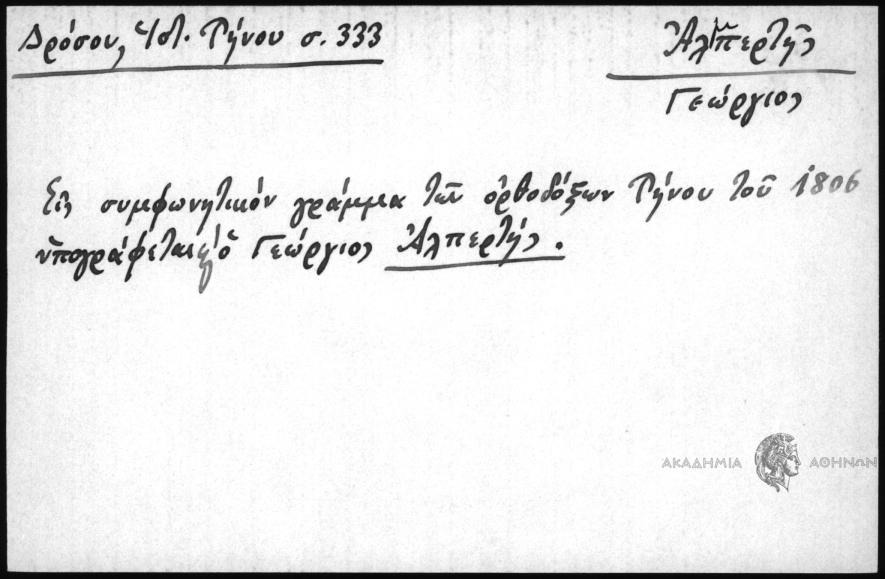 Δρόσου, Ἱστ. Τήνου σ. 333
Ἀλπερτῆς
Γεώργιος
Εἰς συμφωνητικόν γράμμα τῶν ὀρθοδόξων Τήνου τοῦ 1806
ὑπογράφεται ὁ Γεώργιος Ἀλπερτῆς.
ΑΚΑΔΗΜΙΑ ΑΘΗΝΩΝ